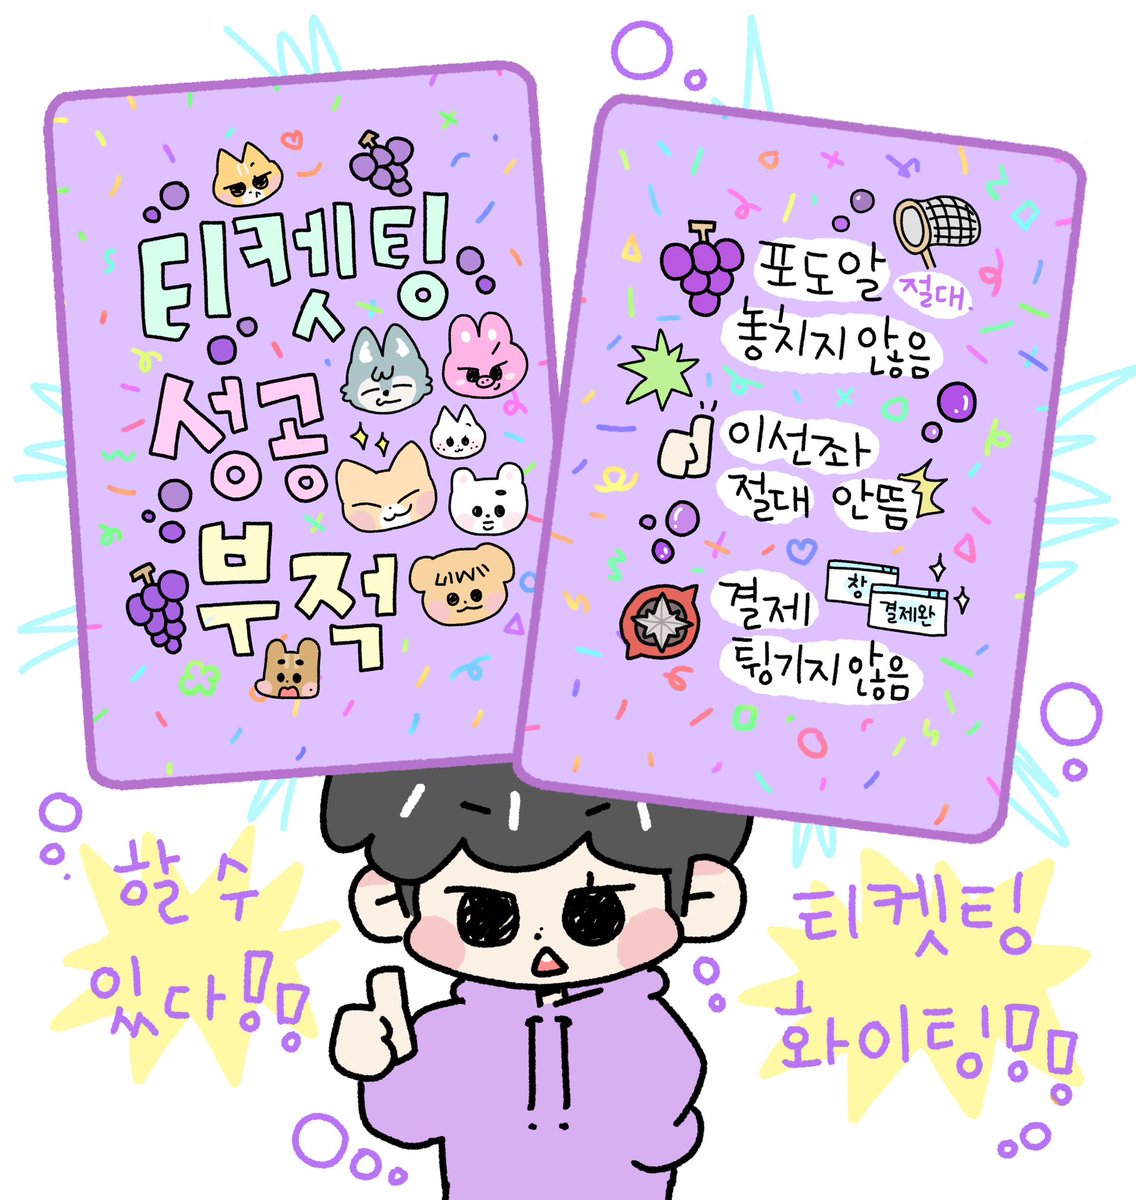 티켓팅
성공
부적
포도알 절대
놓치지 않음
이선좌
절대 안뜸
결제
튕기지 않음
창
결제완
할 수
있다!!
티켓팅
화이팅!!